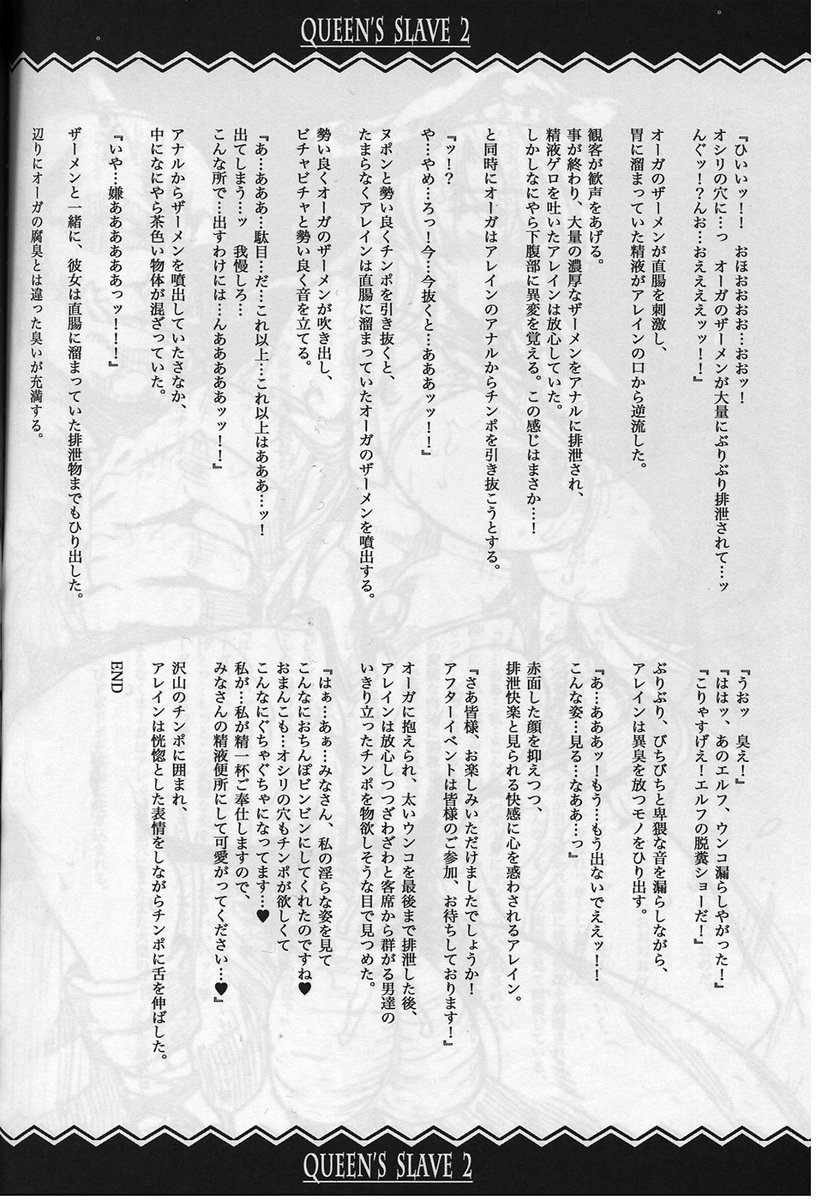 QUEEN'S SLAVE 2
『ひいいッ!!　おほおおおお…おおッ!
オシリの穴に…っ　オーガのザーメンが大量にぶりぶり排泄されて…ッ
んぐッ!?んお…おええええッッ!!』
オーガのザーメンが直腸を刺激し、
胃に溜まっていた精液がアレインの口から逆流した。
観客が歓声をあげる。
事が終わり、大量の濃厚なザーメンをアナルに排泄され、
精液ゲロを吐いたアレインは放心していた。
しかしなにやら下腹部に異変を覚える。この感じはまさか…!
と同時にオーガはアレインのアナルからチンポを引き抜こうとする。
『ッ!?
や…やめ…ろっ!今…今抜くと…あああッッ!!』
ヌポンと勢い良くチンポを引き抜くと、
たまらなくアレインは直腸に溜まっていたオーガのザーメンを噴出する。
勢い良くオーガのザーメンが吹き出し、
ビチャビチャと勢い良く音を立てる。
『あ…あああ…駄目…だ…これ以上…これ以上はあああ…ッ!
出てしまう…ッ　我慢しろ…
こんな所で…出すわけには…んああああああッッ!!』
アナルからザーメンを噴出していたさなか、
中になにやら茶色い物体が混ざっていた。
『いや…嫌ああああああっッ!!!』
ザーメンと一緒に、彼女は直腸に溜まっていた排泄物までもひり出した。
辺りにオーガの腐臭とは違った臭いが充満する。
『うおッ　臭え!』
『ははッ、あのエルフ、ウンコ漏らしやがった!』
『こりゃすげえ!エルフの脱糞ショーだ!』
ぶりぶり、びちびちと卑猥な音を漏らしながら、
アレインは異臭を放つモノをひり出す。
『あ…あああッ!もう…もう出ないでええッ!!
こんな姿…見る…なああ…っ』
赤面した顔を抑えつつ、
排泄快楽と見られる快感に心を惑わされるアレイン。
『さあ皆様、お楽しみいただけましたでしょうか!
アフターイベントは皆様のご参加、お待ちしております!』
オーガに抱えられ、太いウンコを最後まで排泄した後、
アレインは放心しつつざわざわと客席から群がる男達の
いきり立ったチンポを物欲しそうな目で見つめた。
『はぁ…あぁ…みなさん、私の淫らな姿を見て
こんなにおちんぽビンビンにしてくれたのですね♥
おまんこも…オシリの穴もチンポが欲しくて
こんなにぐちゃぐちゃになってます…♥
私が…私が精一杯ご奉仕しますので、
みなさんの精液便所にして可愛がってください…♥』
沢山のチンポに囲まれ、
アレインは恍惚とした表情をしながらチンポに舌を伸ばした。
END
QUEEN'S SLAVE 2